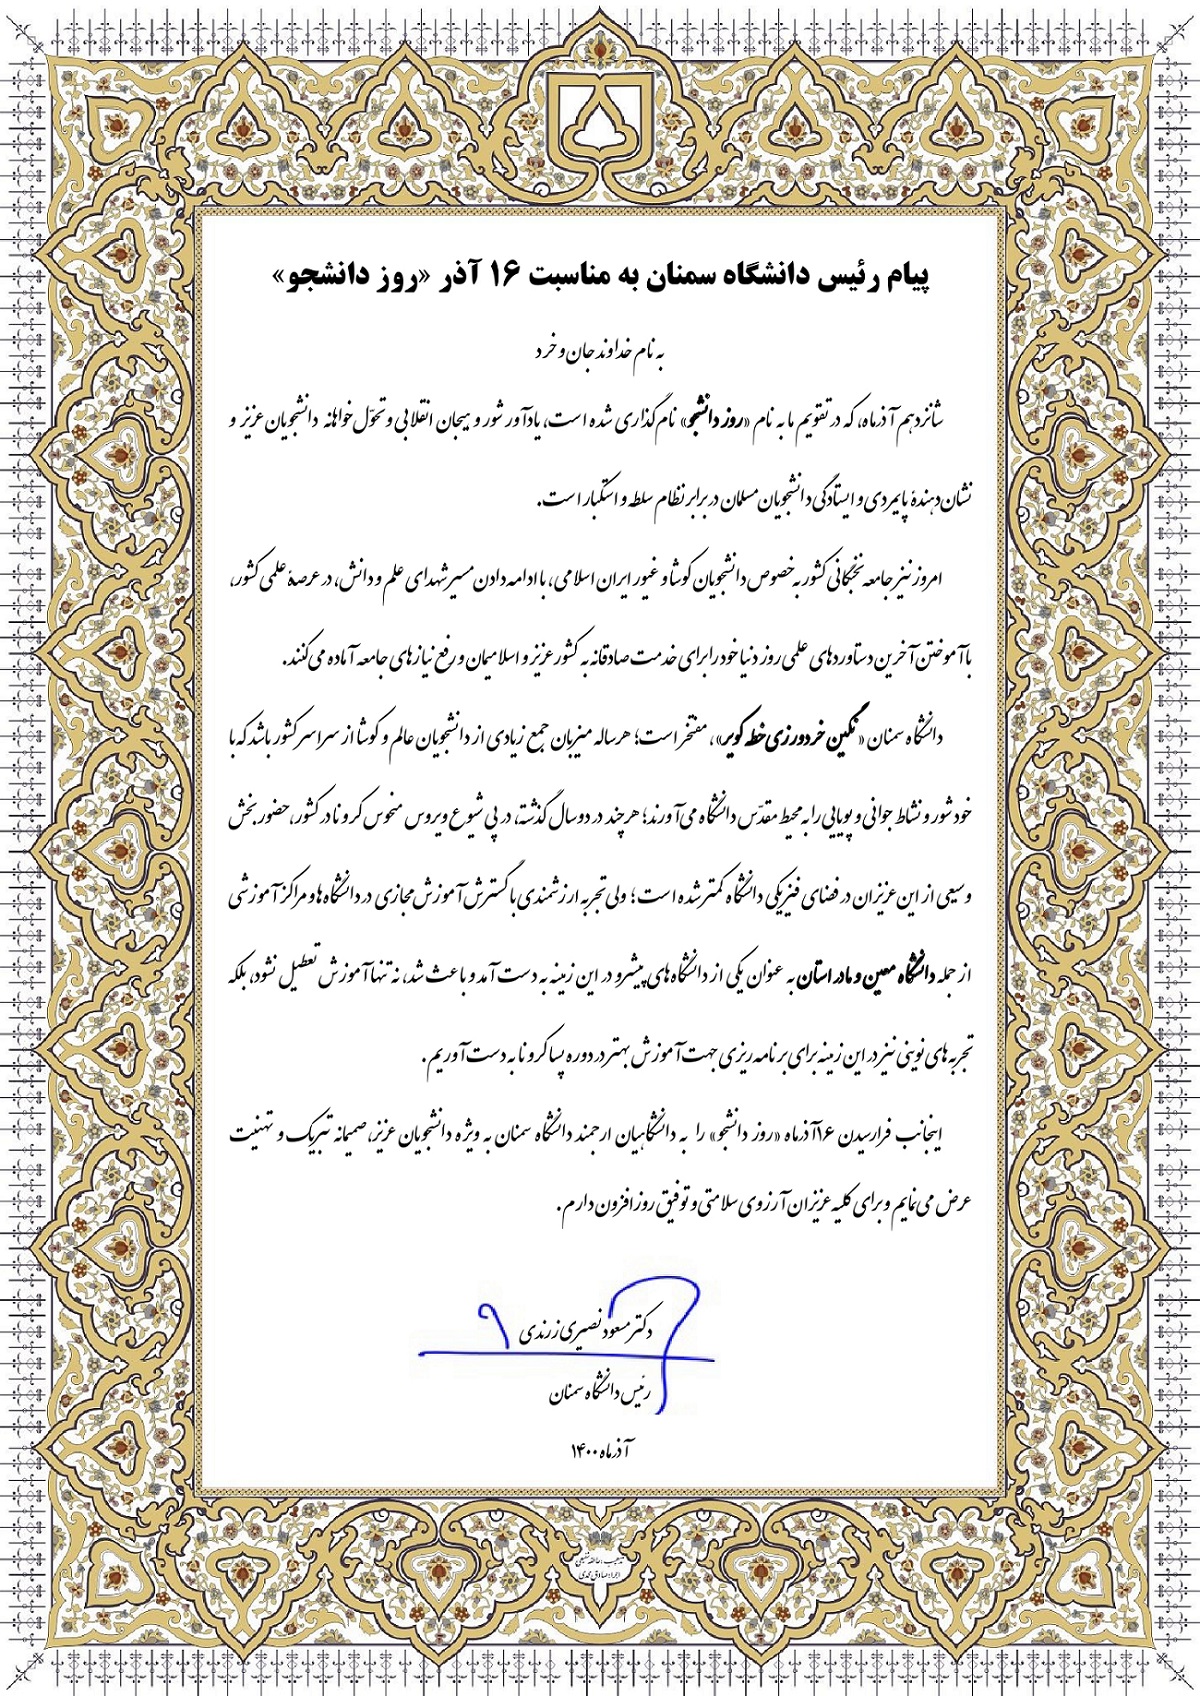 پیام رئیس دانشگاه سمنان به مناسبت ۱۶ آذر «روز دانشجو»
به نام خداوند جان و خرد
شانزدهم آذرماه، که در تقویم ما به نام «روز دانشجو» نام‌گذاری شده است، یادآور شور و هیجان انقلابی و تحوّل خواهانه دانشجویان عزیز و
نشان‌دهندهٔ پایمردی و ایستادگی دانشجویان مسلمان در برابر نظام سلطه و استکبار است.
امروز نیز جامعه نخبگانی کشور به خصوص دانشجویان کوشا و غیور ایران اسلامی، با ادامه دادن مسیر شهدای علم و دانش، در عرصهٔ علمی کشور،
با آموختن آخرین دستاوردهای علمی روز دنیا خود را برای خدمت صادقانه به کشور عزیز و اسلامیمان و رفع نیازهای جامعه آماده می‌کنند.
دانشگاه سمنان «نگین خردورزی خطه کویر»، مفتخر است؛ هرساله میزبان جمع زیادی از دانشجویان عالم و کوشا از سراسر کشور باشد که با
خود شور و نشاط جوانی و پویایی را به محیط مقدّس دانشگاه می‌آورند؛ هرچند در دو سال گذشته، در پی شیوع ویروس منحوس کرونا در کشور، حضور بخش
وسیعی از این عزیزان در فضای فیزیکی دانشگاه کمتر شده است؛ ولی تجربه ارزشمندی با گسترش آموزش مجازی در دانشگاه‌ها و مراکز آموزشی
از جمله دانشگاه معین و مادر استان به عنوان یکی از دانشگاه‌های پیشرو در این زمینه به دست آمد و باعث شد، نه تنها آموزش تعطیل نشود، بلکه
تجربه‌های نوینی نیز در این زمینه برای برنامه‌ریزی جهت آموزش بهتر در دوره پساکرونا به دست آوریم.
اینجانب فرارسیدن ۱۶آذرماه «روز دانشجو» را به دانشگاهیان ارجمند دانشگاه سمنان به ویژه دانشجویان عزیز، صمیمانه تبریک و تهنیت
عرض می‌نمایم و برای کلیه عزیزان آرزوی سلامتی و توفیق روزافزون دارم.
دکتر مسعود نصیری زرندی
رئیس دانشگاه سمنان
آذرماه ۱۴۰۰